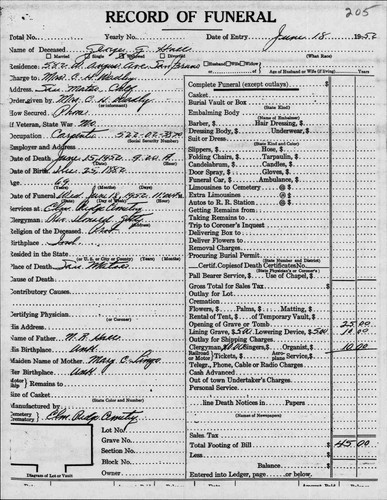 RECORD OF FUNERAL
205
Total No. Yearly No. Date of Entry June 18 1952
Name of Deceased George G. Hall
Married Single Widowed Divorced (What Race)
Residence: 522 Ave. San Bruno Husband Wife Widow
Charge to Mrs. C. H. Age of Husband or Wife (if living) Years
Address San Mateo Calif. Complete Funeral (except outlays) $
Order given by Mrs. C. H. Casket
Burial Vault or Box
(State Kind)
How Secured Phone Embalming Body
If Veteran, State War No Barber, $ Hair Dressing, $
Occupation Carpenter 522-02- Dressing Body, $ Underwear, $
(Social Security Number) Suit or Dress
Employer and Address (State Kind and Color)
Slippers, $ Hose, $
Date of Death June 15, 1952 9:20 A. Folding Chairs, $ Tarpaulin, $
Date of Birth Dec. 25, 1882 Candelabrum, $ Candles, $
Door Spray, $ Gloves, $
Age 69 Funeral Car, $ Ambulance, $
(Years) (Months) (Days) Limousines to Cemetery @ $
Date of Funeral Wed. June 18, 1952 Extra Limousines @ $
Services at Elm Ridge Cemetery Autos to R. R. Station @ $
Clergyman Rev. Getting Remains from
Taking Remains to
Trip to Coroner's Inquest
Religion of the Deceased Prot Delivering Box to
Birthplace Ind. Deliver Flowers to
Removal Charges
Resided in the State Procuring Burial Permit
(or U. S., or City or County) (Years) (Months) (State Number and District)
Place of Death San Mateo Certif. Copies of Death Certificates No.
(State Physician's or Coroner's)
Cause of Death Pall Bearer Service, $ Use of Chapel, $
Gross Total for Sales Tax $
Contributory Causes Outlay for Lot
Cremation
Flowers, $ Palms, $ Matting, $
Certifying Physician Rental of Tent, $ of Temporary Vault, $
(or Coroner) Opening of Grave or Tomb 25.00
His Address Lining Grave, $5.00 Lowering Device, $5.00 10.00
Outlay for Shipping Charges
Name of Father W. R. Hall Clergyman, $ 10.00 Singers, $ Organist, $ 10.00
His Birthplace Unk. Railroad or Motor Tickets, $ Aeroplane Service, $
Maiden Name of Mother Mary C. Telegr., Phone, Cable or Radio Charges
Her Birthplace Unk Cash Advanced
Out of town Undertaker's Charges
Motor Remains to Personal Service
Size of Casket Outline Death Notices in Papers
(State Color and Number) (Names of Newspapers)
Manufactured by
Cemetery Crematory Elm Ridge Cemetery
Sales Tax
Lot No. Total Footing of Bill $ 45.00
Grave No. Less
Section No. Balance
Block No. Entered into Ledger, page or below.
Owner
Diagram of Lot or Vault